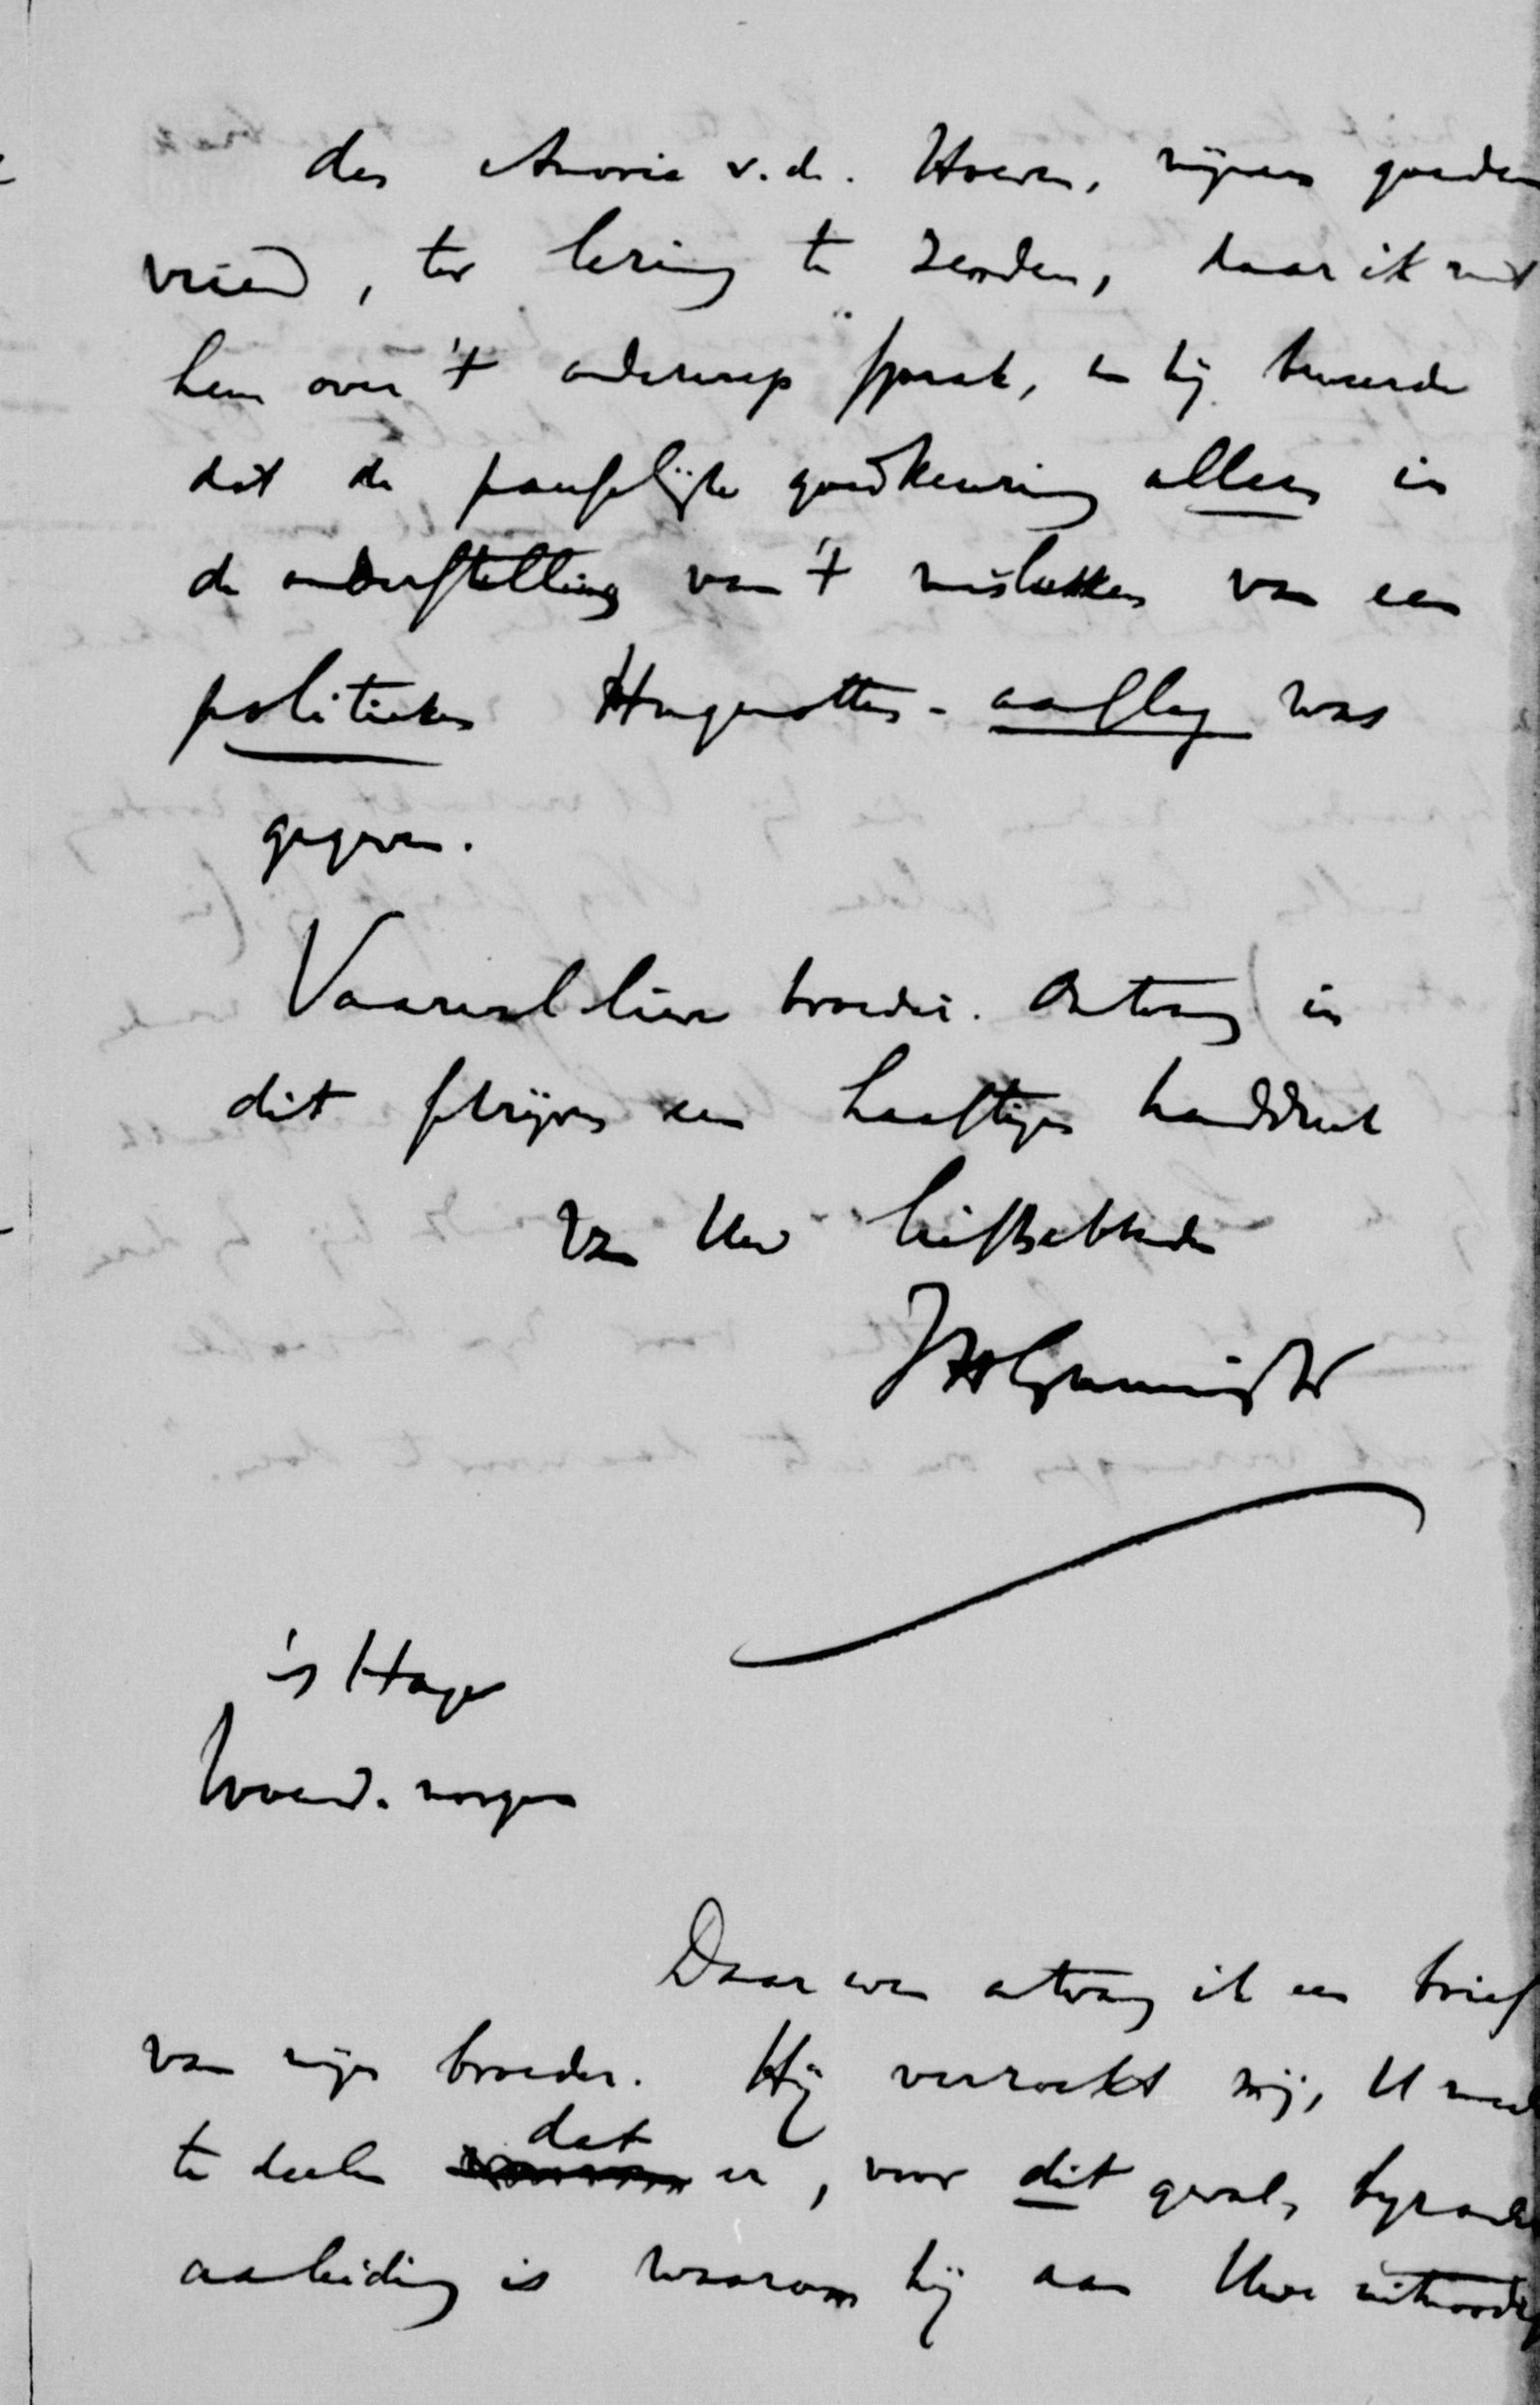 des Amorie v.d. Hoeven, mijnen goeden
vriend, ter lezing te zenden, daar ik met
hem over 't onderwerp sprak, en hij beweerde
dat de pauselijke goedkeuring alleen in
de onderstelling van 't mislukken van een
politieken Hugenotten-aanslag was
gegeven.
Vaarwel lieve broeder. Ontvang in
dit schrijven een hartigen handdruk
van Uw liefhebbenden
JHGunning Jr
's Hage
Woensd. morgen
Daar even ontvang ik een brief
van mijn broeder. Hij verzoekt mij, U mede
te deelen dat er, voor dit geval, byzondere
aanleiding is waarom hij aan Uwe uitnoodig